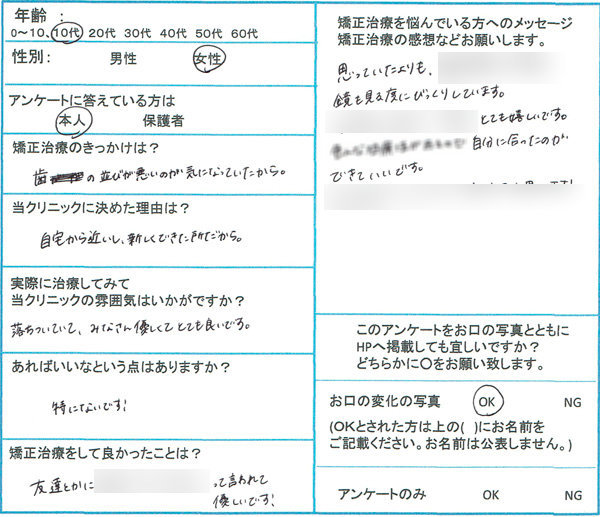 年齢 :
0～10、10代 20代 30代 40代 50代 60代
性別: 男性 女性
アンケートに答えている方は
本人 保護者
矯正治療のきっかけは?
歯 の並びが悪いのが気になっていたから。
当クリニックに決めた理由は?
自宅から近いし、新しくできた所だから。
実際に治療してみて
当クリニックの雰囲気はいかがですか?
落ちついていて、みなさん優しくてとても良いです。
あればいいなという点はありますか?
特にないです!
矯正治療をして良かったことは?
友達とかに
って言われて
優しいです!
矯正治療を悩んでいる方へのメッセージ
矯正治療の感想などお願いします。
思っていたよりも、
鏡を見る度にびっくりしています。
とても嬉しいです。
自分に合ったのが
できていいです。
このアンケートをお口の写真とともに
HPへ掲載しても宜しいですか?
どちらかに〇をお願い致します。
お口の変化の写真 OK NG
(OKとされた方は上の( )にお名前を
ご記載ください。お名前は公表しません。)
アンケートのみ OK NG